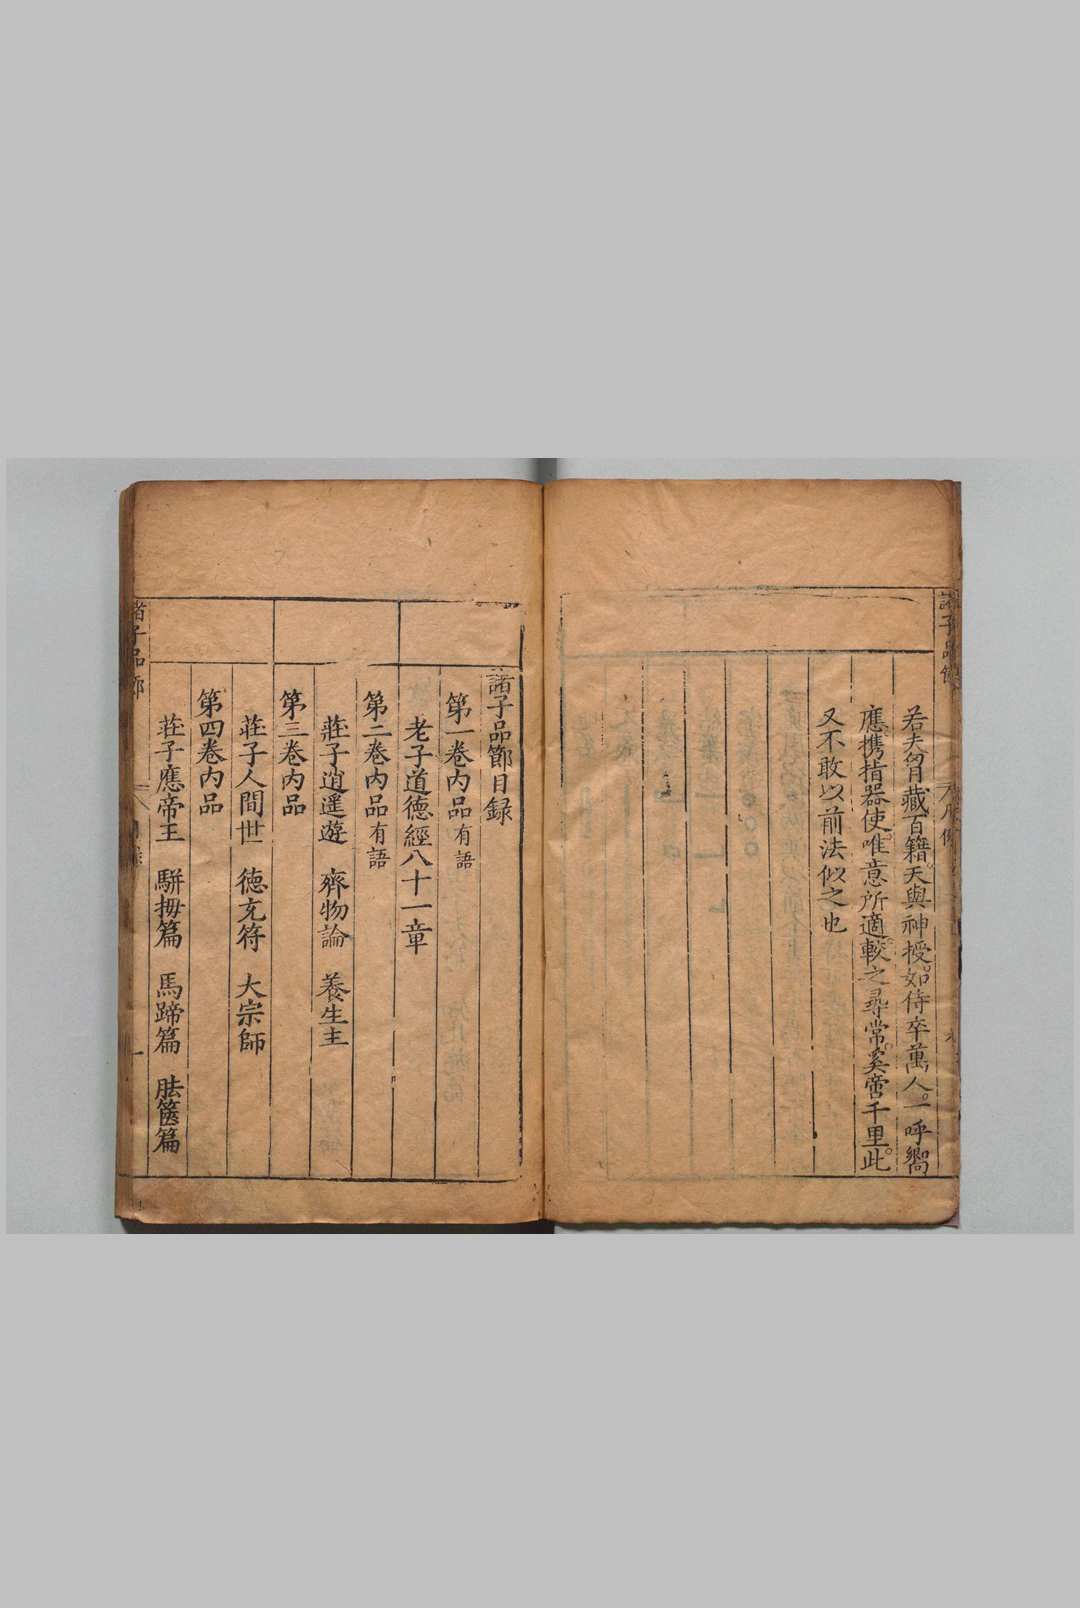 諸子品節
凡例
若夫胷藏百籍天與神授如侍卒萬人一呼嚮
應攜指器使唯意所適較之尋常奚啻千里此
又不敢以前法似之也
諸子品節目録
第一卷内品有語
老子道德經八十一章
第二卷内品有語
莊子逍遥遊 齊物論 養生主
第三卷内品
莊子人間世 德充符 大宗師
第四卷内品
莊子應帝王 駢拇篇 馬蹄篇 胠篋篇
諸子品節
一